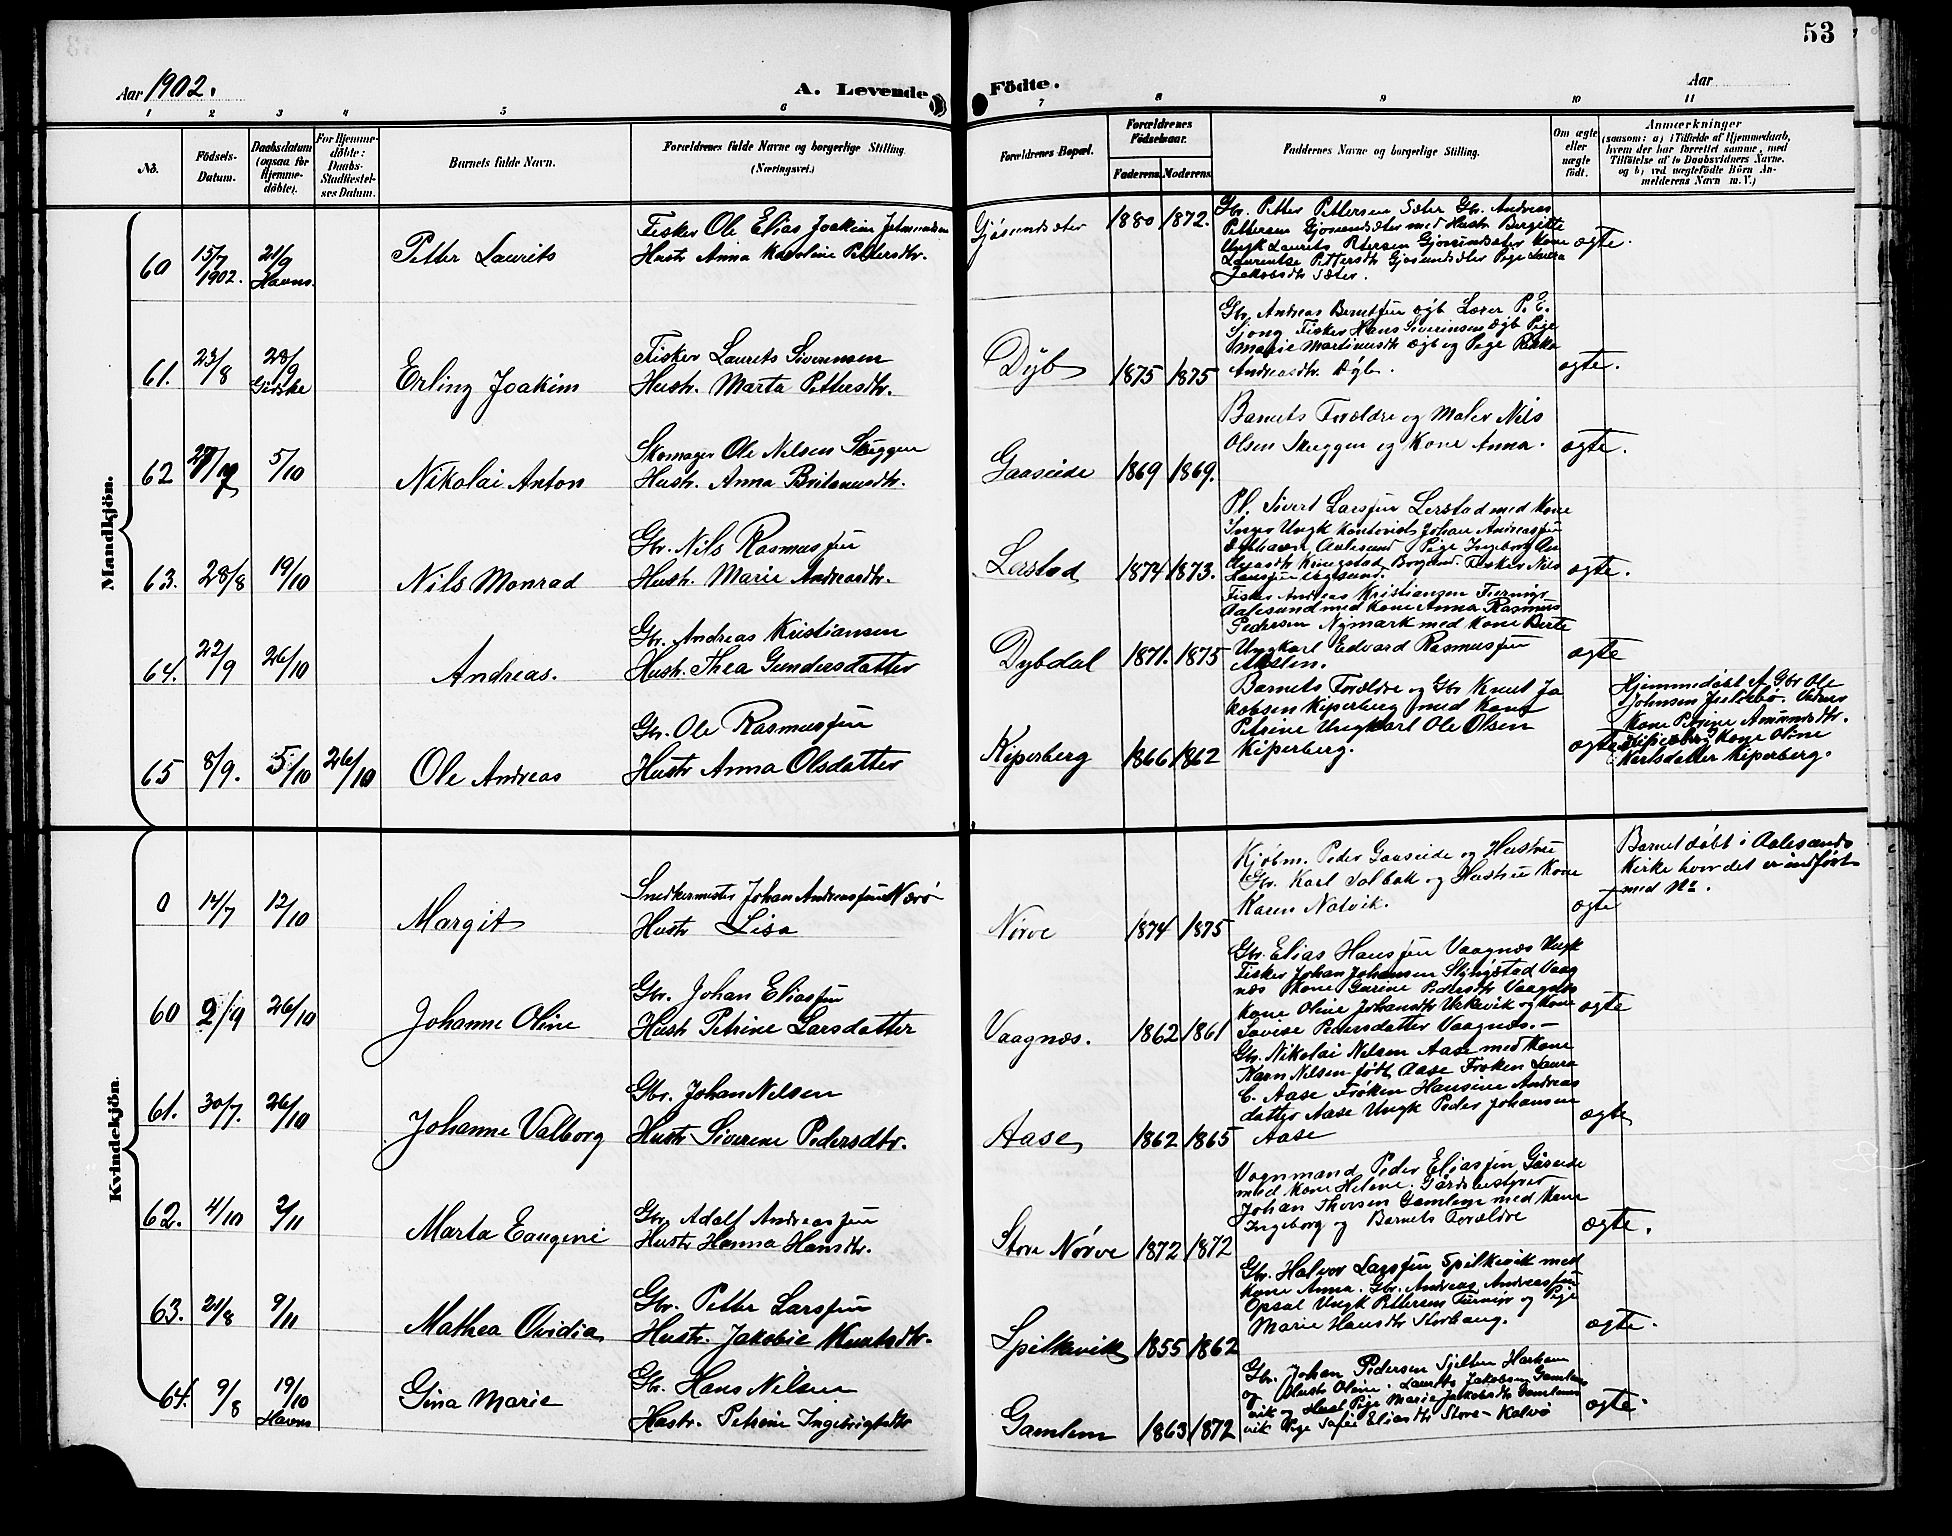 53
Aar 1902.
A. Levende Födte.
Aar
1 2 3 4 5 6 7 8 9 10 11
No.
Födsels-Datum.
Daabsdatum (ogsaa for Hjemme-döbte).
For Hjemme-döbte: Daabs-Stadfæstel-ses Datum.
Barnets fulde Navn.
Forældrenes fulde Navne og borgerlige Stilling. (Næringsvei.)
Forældrenes Bopæl.
Forældrenes Födselsaar.
Faderens. Moderens.
Faddernes Navne og borgerlige Stilling.
Om ægte eller uægte födt.
Anmærkninger
(saasom: a) i Tilfælde af Hjemmedaab,
hvem der har forrettet samme, med
Tilföielse af to Daabsvidners Navne,
og b) ved uægtefödte Börn An-
melderens Navn m. V.)
Mandkjön.
60 15/7 1902. 21/9 Havns. Petter Laurits
Fisker Ole Elias Joakim
Hustr Anna Karoline Pettersdtr.
Gjøsundsæter 1880 1872.
Gbr. Petter Pettersen Sæter Gbr. Andreas
Pettersen Gjøsundsæter med Hustr Bergitte
Ungk Laurits Petersen Gjøsundsæter Kone
Laurentse Pettersdtr Gjøsundsæter Pige Laura
Jakobsdtr Sæter.
ægte.
61. 23/8 28/9 Giske Erling Joakim
Fisker Laurits Siverinsen
Hustr. Marta Pettersdtr.
Dyb 1875 1875
Gbr. Andreas Berntsen Dyb Lærer P. E.
Sjong Fisker Hans Siverinsen Dyb Pige
Marie Martinusdtr Dyb og Pige
Andreasdtr Dyb.
ægte.
62 5/10 Nikolai Anton
Skomager Ole Nilsen Skeggen
Hustr. Anna
Gaaseide 1869 1869.
Barnets Forældre og Maler Nils
Olsen Skeggen og Kone Anna.
ægte.
63. 28/8 19/10 Nils Monrad
Gbr. Nils Rasmussen
Hustr. Marie Andreasdtr.
Lerstad 1874 1873.
Pl. Sivert Larssen Lerstad med Kone
Inger Ungk Kontorist Johan Andreassen
Aalesund Pige Ingeborg
Borgund. Fisker Nils
Hanssen
ægte.
64. 22/9 26/10 Andreas.
Gbr. Andreas Kristiansen
Hustr. Thea Gundersdatter
Dybdal 1871. 1875
Fisker Andreas Kristiansen
Aalesund med Kone Anna Rasmus
Pedersen Nymark med Kone Berte
Ungkarl Edvard Rasmussen
ægte
65 8/9. 5/10 26/10 Ole Andreas
Gbr. Ole Rasmussen
Hustr Anna Olsdatter
Kiperberg 1866 1862
Barnets Forældre og Gbr Knut Ja
kobsen Kiperberg med Kone
Petrine Ungkarl Ole Olsen
Kiperberg.
ægte
Hjemmedøbt af Gbr Ole
Johnsen
Kone Petrine Amundsdtr.
Kiperberg Kone Oline
Karlsdatter Kiperberg.
Kvindekjön.
0 14/7 12/10 Margit
Snedkermester Johan Andreassen Nærø
Hustr Lisa
Nørve 1874 1875
Kjøbm. Peder Gaaseide og Hustru
Gbr. Karl Solbak og Hustru Kone
Karen Natvik.
ægte
Barnet døbt i Aalesunds
Kirke hvor det er indført
med No.
60 2/9 26/10 Johanne Oline
Gbr. Johan Eliassen
Hustr Petrine Larsdatter
Vaagnæs. 1862 1861
Gbr. Elias Hanssen Vaagnæs Ungk
Fisker Johan Johansen Slyngstad Vaag
næs Kone Gurine Pedersdtr Vaagnæs
Kone Oline Johansdtr og Kone
Lovise Pedersdatter Vaagnæs.–
ægte
61. 30/7. 26/10 Johanne Valborg
Gbr. Johan Nelsen
Hustr Siverene Pedersdtr.
Aase 1862 1865
Gbr. Nikolai Nelsen Aase med Kone
Karn Nilsen født Aase Frøken Laura
C. Aase Frøken Hansine Andreas
datter Aase Ungk Peder Johansen
Aase
ægte
62. 4/10 2/11 Marta Eaugene
Gbr Adolf Andreassen
Hustr Hanna Hansdtr.
Store Nørve 1872 1872
Vognmand Peder Eliassen Gåseide
med Kone Helene. Gårdbestyrer
Johan Thorsen Gamlem med Kone
Ingeborg og Barnets Forældre
ægte.
63. 21/8 9/11 Mathea Ovidia
Gbr. Petter Larssen
Hustr. Jakobie Knutsdtr.
Spilkevik 1855 1862
Gbr. Halvor Larssen Spilkevik med
Kone Anna. Gbr. Andreas Andreassen
Opsal Ungk Pettersen og Pige
Marie Hansdtr Storhaug.
ægte.
64. 9/8 19/10 Havns Gina Marie
Gbr. Hans Nilsen
Hustr. Petrine Ingebrigtsdtr
Gamlem 1863 1872
Gbr. Johan Pedersen
og Hustr Oline. Laurits Jakobsen Gamlems
vik og Hust Pige Marie Jakobsdtr Gamlems
vik Pige Sofie Eliasdtr Store-Kalvø
ægte.